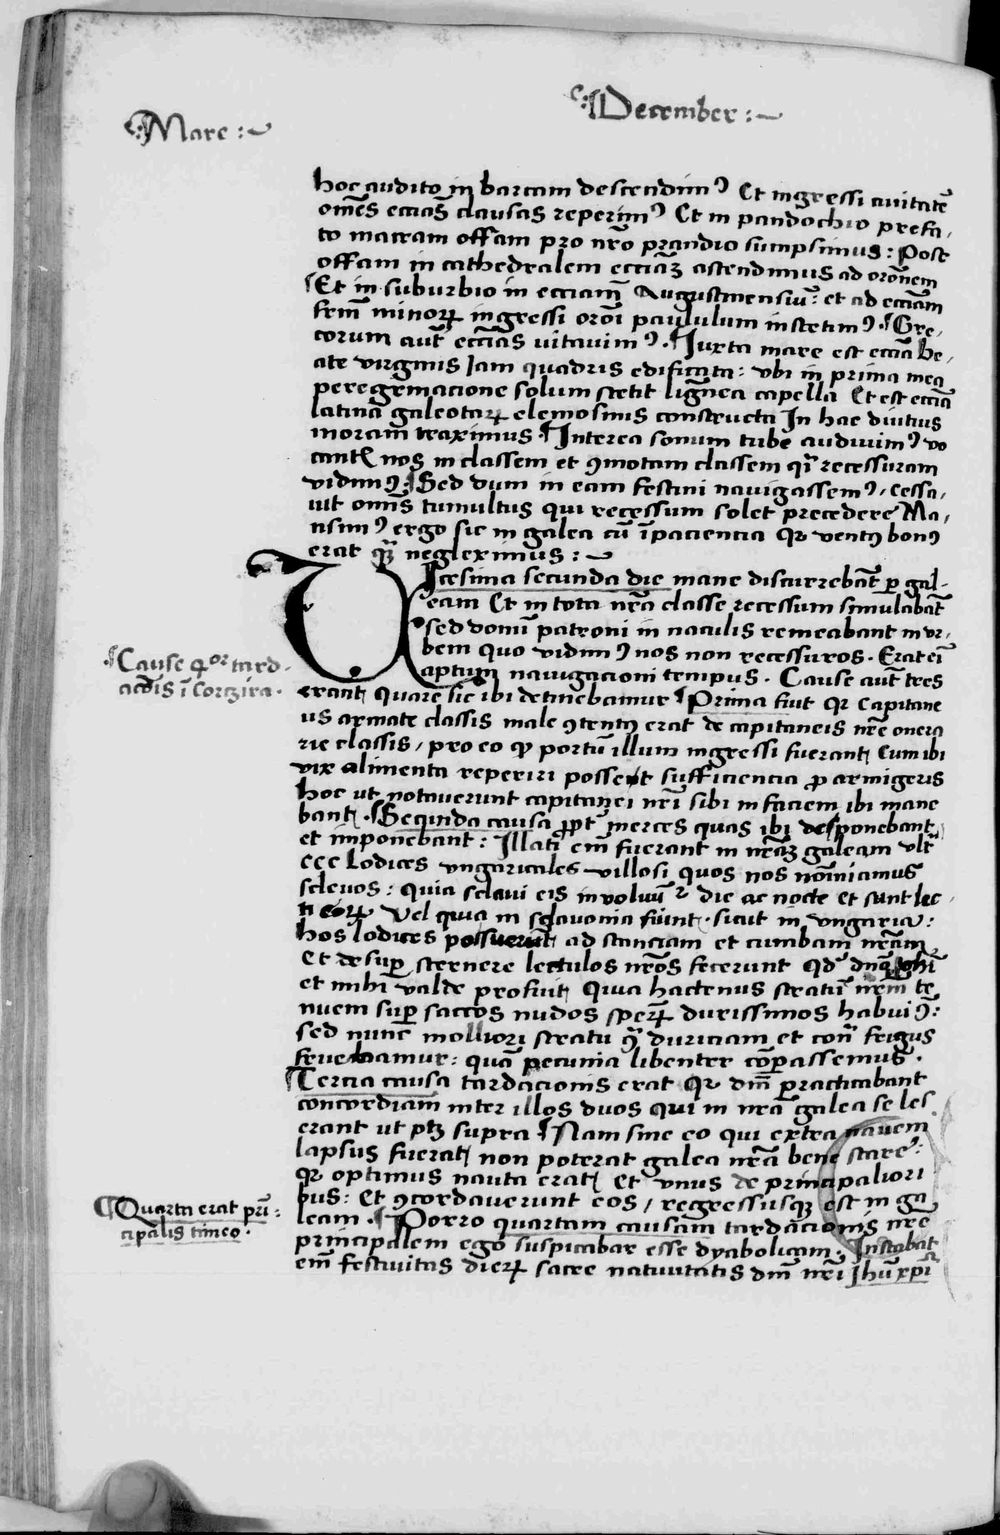 Mare :~
December :~
hoc audito in barcam descendimꝰ Et ingressi ciuitatē
om̄es ecc̄ias clausas reperimꝰ Et in pandochio prefa,
to macram offam pro nr̄o prandio sumpsimus : Post
offam in cathedralem ecc̄iaꝫ ascendimus ad orōnem
¶Et in suburbio in ecc̄iam̄ Augustinensiū : et ad ecc̄iam
frm̄ minoꝝ ingressi oroī paululum instetimꝰ . ¶Gre,
corum aut̄ ecc̄ias vitauimꝰ . ¶Iuxta mare est ecc̄ia be,
ate virginis Iam quadris edificata : vbi in prima mea
peregrinacione solum stetit lignea capella Et est ecc̄ia
latina galeotaꝝ elemosinis constructa In hac diutius
moram traximus . ¶Interea sonum tube audiuimꝰ vo
cantē nos in classem et ꝯmotam classem q̄ı recessuram
vidimꝰ . ¶Sed dum in eam festini nauigassemꝰ , cessa,
uit omīs tumultus qui recessum solet precedere Ma,
nsimꝰ ergo sic in galea cū īpaciencia qꝛ ventꝰ bonꝰ
erat quē negleximus : ~
Vicesima secunda die mane discurrebāt ꝑ gal-
eam Et in tota nr̄a classe recessum simulabāt
sed domī patroni in naculis remeabant in vr,
bem quo vidimꝰ nos non recessuros . Erat eī
aptum nauigacioni tempus . Cause aut̄ tres
Cause qͣoͬ tard-
acōis ī Corczira .
erant quare sic ibi detinebamur ¶Prima fuit qꝛ Capitane
us armate classis male ꝯtentꝰ erat de capitaneis nr̄e onera
rie classis , pro eo qꝫ portū illum ingressi fuerant Cum ibi
vix alimenta reperiri possent sufficiencia ꝓ armigeris
hoc ut notauerunt capitanei nr̄i sibi in faciem ibi mane
bant . ¶Secunda causa ꝓpt̄ merces quas ibi desponebant
et imponebant : Illati em̄ fuerant in nr̄aꝫ galeam vlt̄
ccc Lodices vngaricales villosi quos nos nōmīamus
sclevos : quia sclaui eis inuoluūͬ die ac nocte et sunt lec,
ti eoꝝ Vel quia in sclavonia fiūnt . sicut in vngaria :
hos lodices posuerūt ad stanciam et cumbam nr̄am
Et desuꝑ sternere lectulos nr̄os fecerunt qd̄
et mihi valde profuit Quia hactenus stratū nr̄m te
nuem suꝑ saccos nudos duriss​imos habuiꝰ :
sed nunc molliori stratu ꝯ̄ duriciam et con̄ frigus
fruebamur : quā pecunia libenter cōpassemus .
¶Tercia causa tardacionis erat qꝛ dm̄ practicabant
concordiam inter illos duos qui in nr̄a galea se les
erant ut ptꝫ supra ¶Nam sine eo qui extra nauem
lapsus fuerat non poterat galea nr̄a bene stare :
qꝛ optimus nauta erat Et vnus de principaliori
bus : Et ꝯcordauerunt eos , regressusqꝫ est in ga
leam . ¶Porro quartam causam tardacionis nr̄e
¶Quarta erat pri̅-
cipalis timeo .
principalem ego suspicabar esse dyabolicam . Instabat
em̄ festiuitas dieꝝ sacre natiuitatis dm̄ nr̄i Jhū xpī